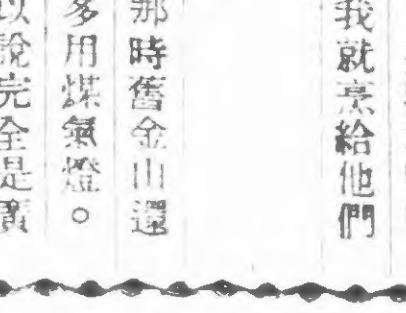 我就烹給他們
那時舊金山還
多用煤氣燈。
以說完全是廣